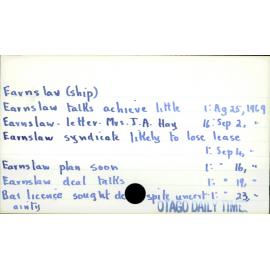 Earnslaw (ship)
Earnslaw talks achieve little 1: Ag 25, 1969
Earnslaw - letter - Mrs. J. A. Hay 16: Sep 2, "
Earnslaw syndicate likely to lose lease
1: Sep 4, "
Earnslaw plan soon 1: " 16, "
Earnslaw deal talks 1: " 19, "
Bar licence sought despite uncert 1: " 23, "
ainty
OTAGO DAILY TIME